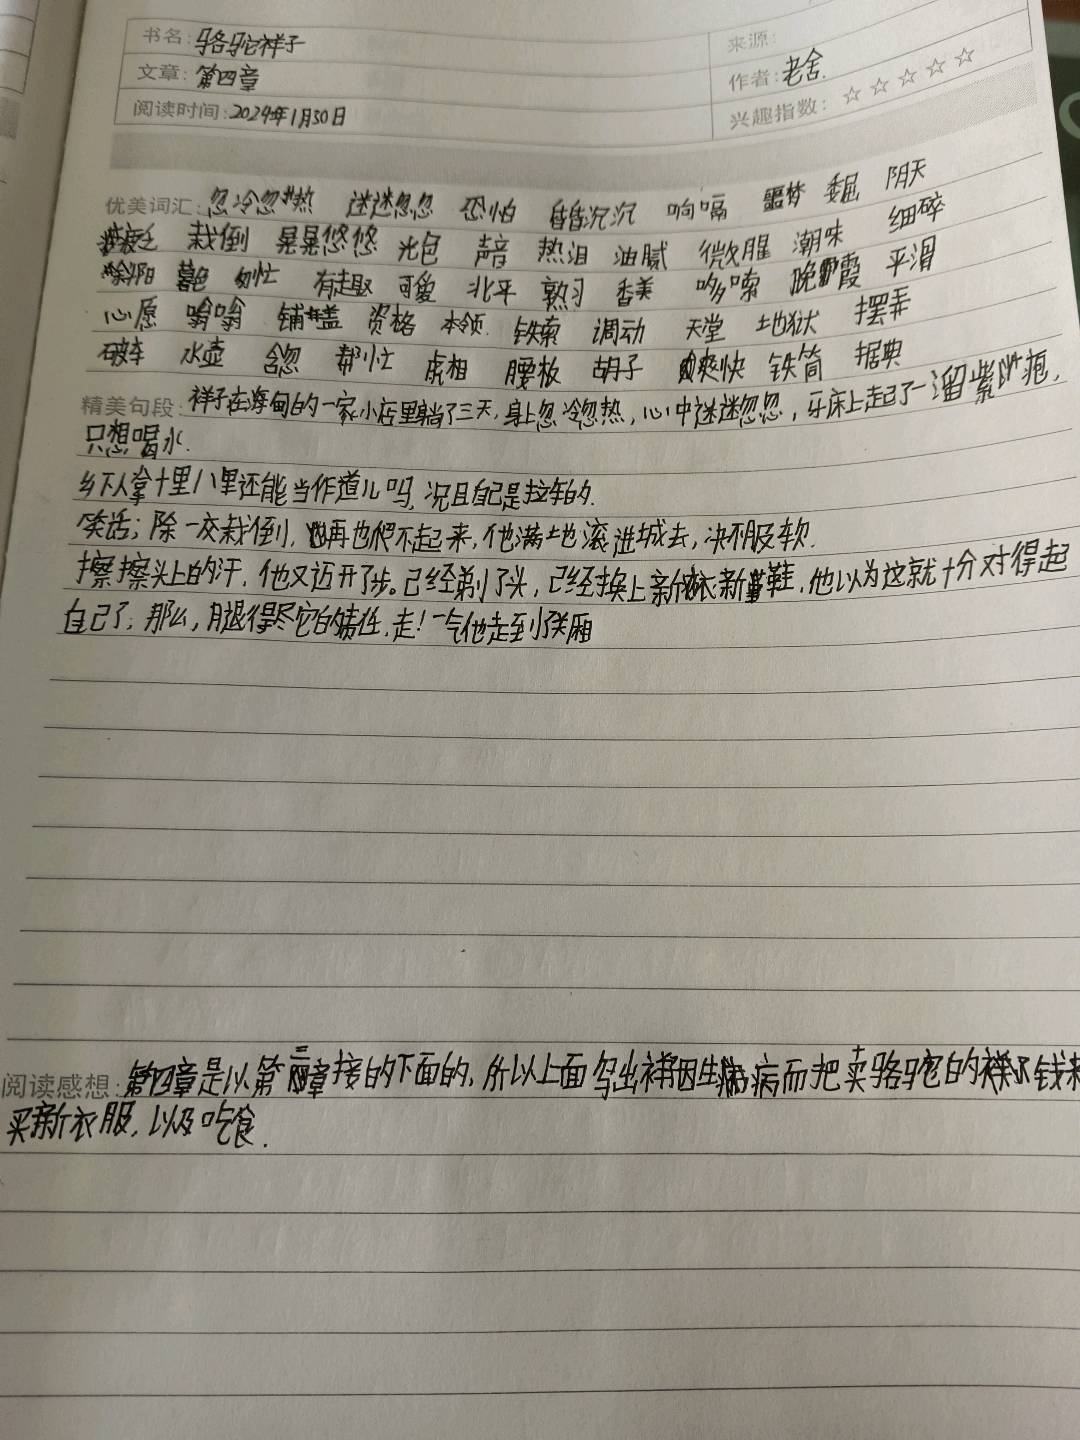 书名: 骆驼祥子 来源:
文章: 第四章 作者: 老舍.
阅读时间: 2024年1月30日 兴趣指数: ☆☆☆☆☆
优美词汇: 忽冷忽热 迷迷忽忽 恐怕 昏昏沉沉 响嗝 噩梦 委屈 阴天
疲乏 栽倒 晃晃悠悠 光色 声音 热泪 油腻 微腥 潮味 细碎
斜阳 暮色 匆忙 有趣 可爱 北平 熟习 香美 哆嗦 晚霞 平滑
心愿 嗡嗡 铺盖 资格 本领. 铁索 调动 天堂 地狱 摆弄
破车 水壶 含忽 帮忙 虎相 腰板 胡子 爽快 铁筒 据典
精美句段: 祥子在海甸的一家小店里躺了三天, 身上忽冷忽热, 心中迷迷忽忽, 牙床上起了一溜紫疱,
只想喝水.
乡下人拿十里八里还能当作道儿吗, 况且自己是拉车的.
笑话; 除一交栽倒, 再也爬不起来, 他满地滚进城去, 决不服软.
擦擦头上的汗, 他又迈开了步。已经剃了头, 已经换上新衣新鞋, 他以为这就十分对得起
自己了; 那么, 腿得尽它的责任, 走! 一气他走到了关厢
阅读感想: 第四章是以第三章接的下面的, 所以上面写出祥子因生病而把卖骆驼的钱来
买新衣服, 以及吃食.